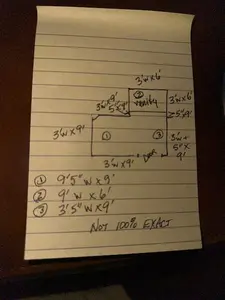 3'w x 6'
②
vanity
3'w x 6'
3'w x 9'
5"x9'
> 5"x9'
3'w x 9'
①
③
3'w +
5" x
9'
3'w x 9'
① 9'5" w x 9'
② 9' w x 6'
③ 3'5" w x 9'
NOT 100% EXACT